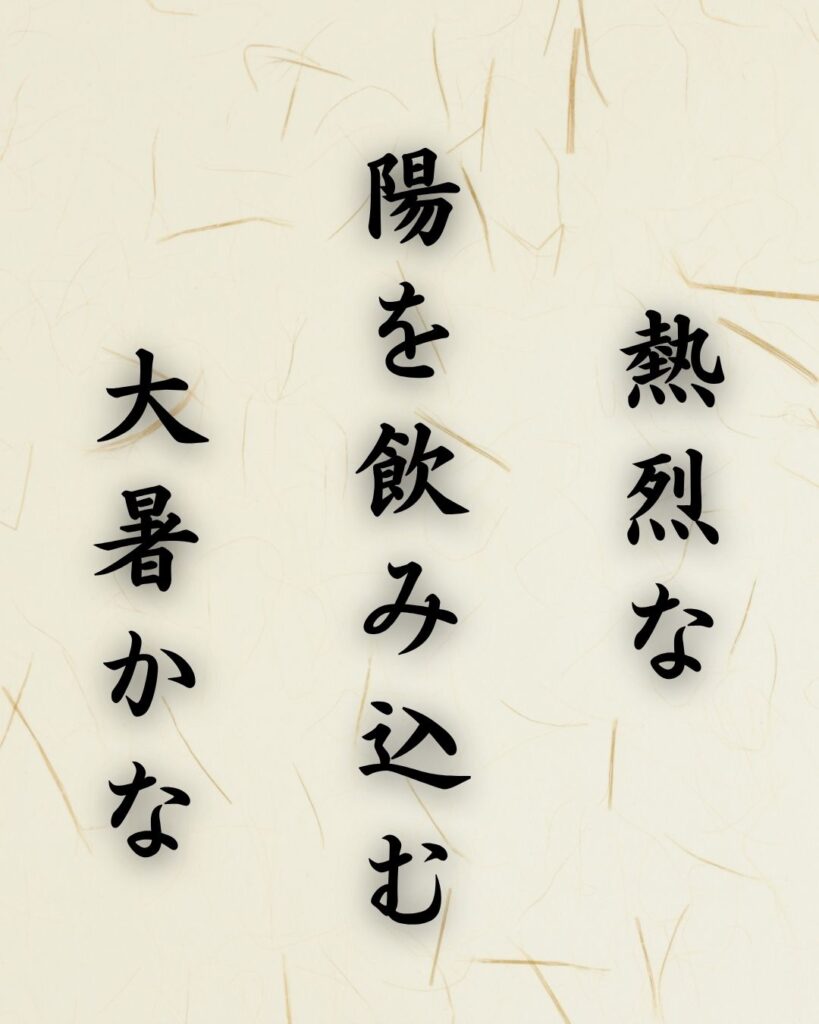 熱烈な
陽を飲み込む
大暑かな